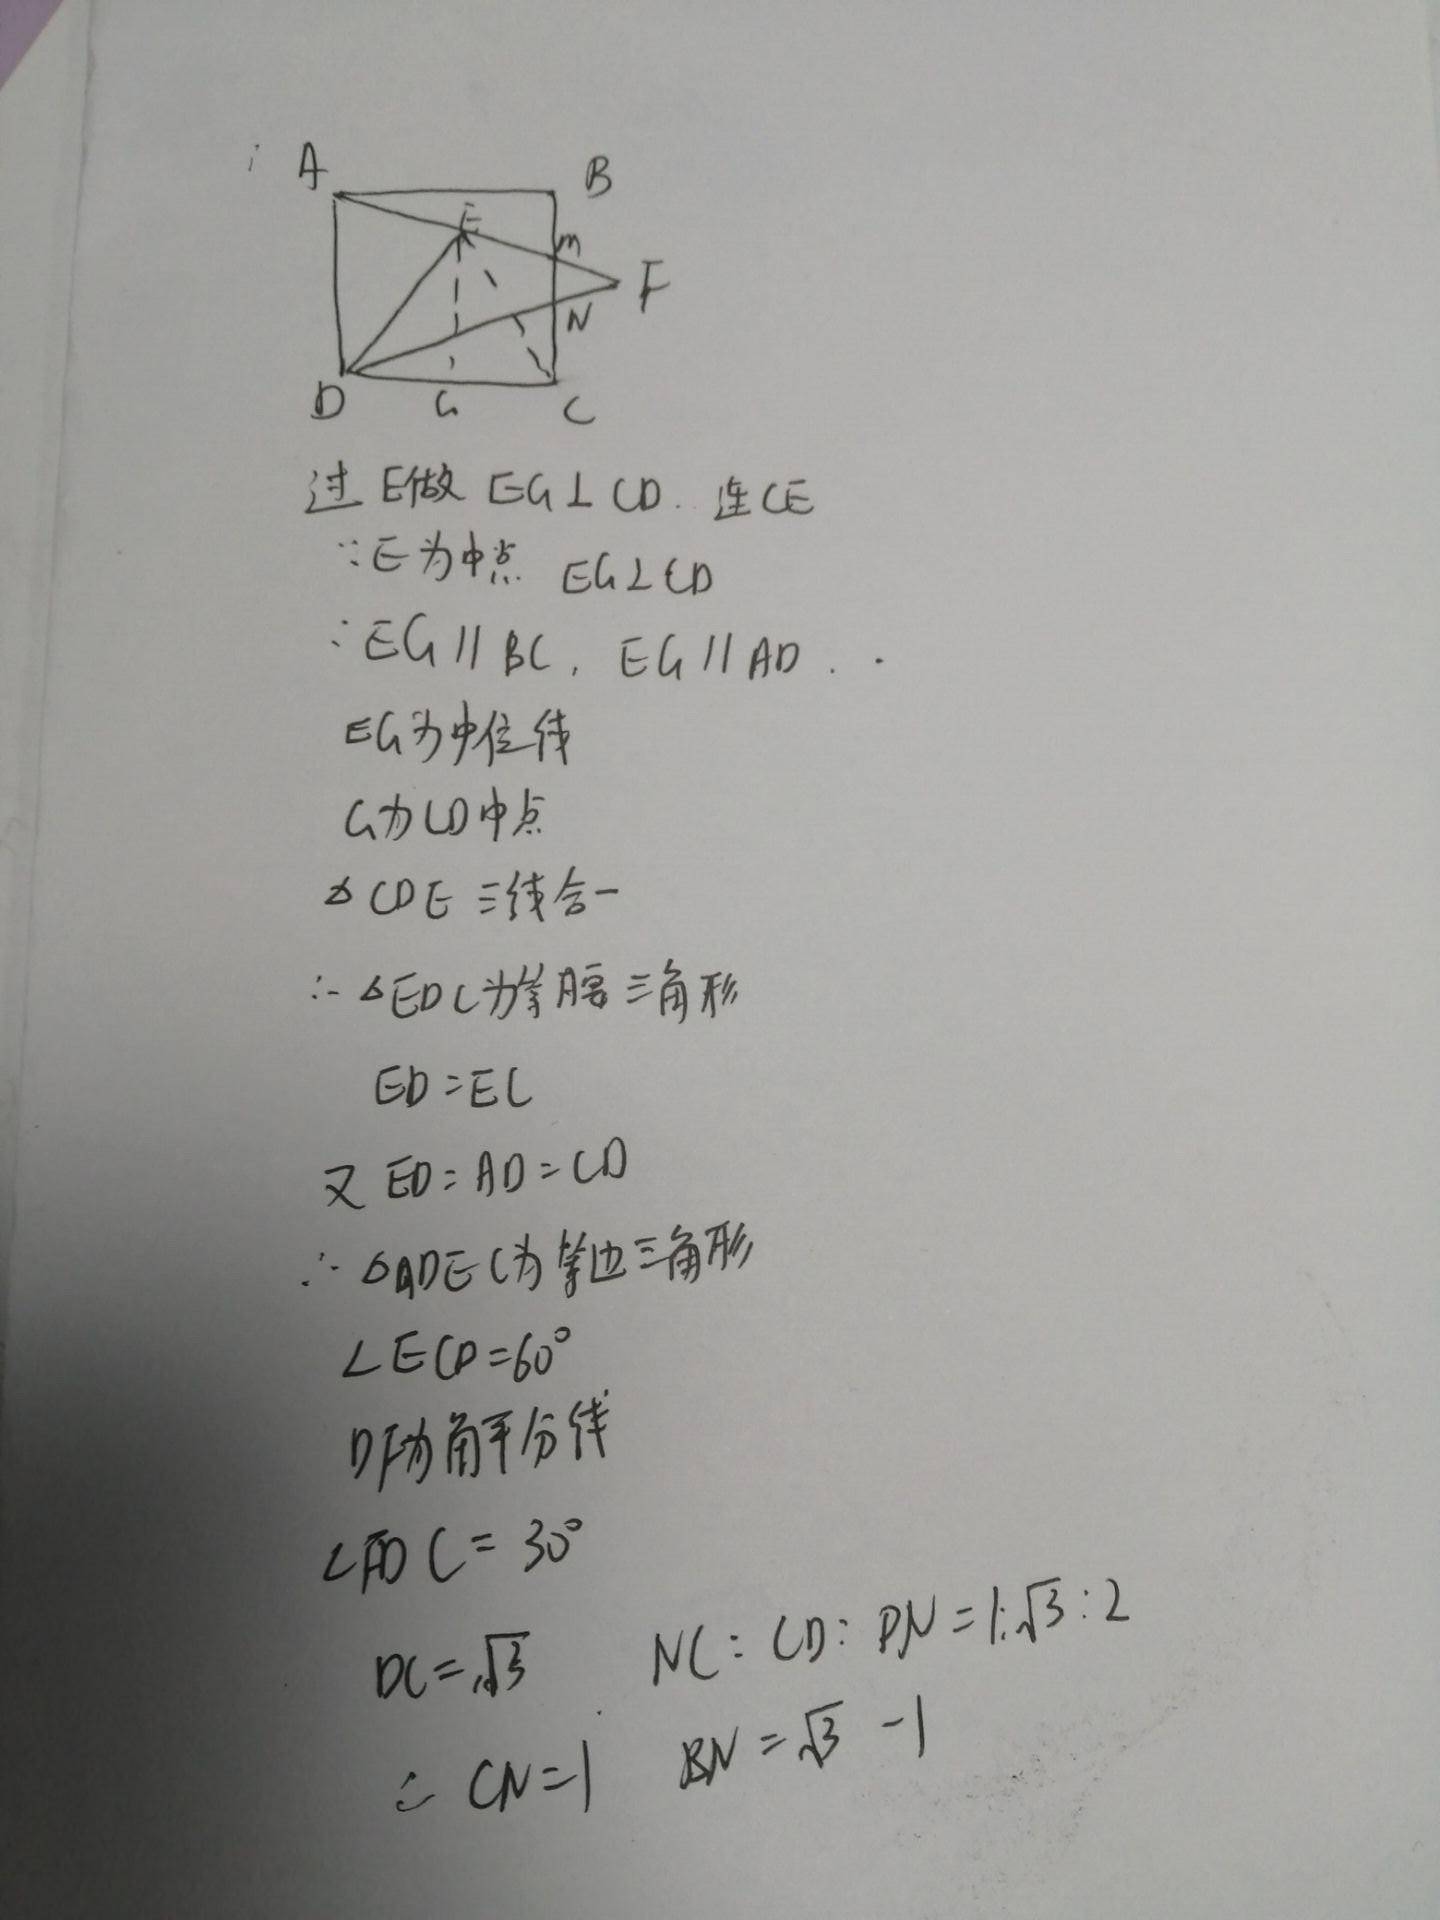 A B
E
M
F
N
D G C
过E做 EG⊥CD. 连CE
∵E为中点 EG⊥CD
∴EG∥BC, EG∥AD.
EG为中位线
G为CD中点
△CDE三线合一
∴△EDC为等腰三角形
ED=EC
又 ED=AD=CD
∴△DEC为等边三角形
∠ECD=60°
DF为角平分线
∠FDC=30°
DC=√3 NC:CD:DN=1:√3:2
∴CN=1 BN=√3-1